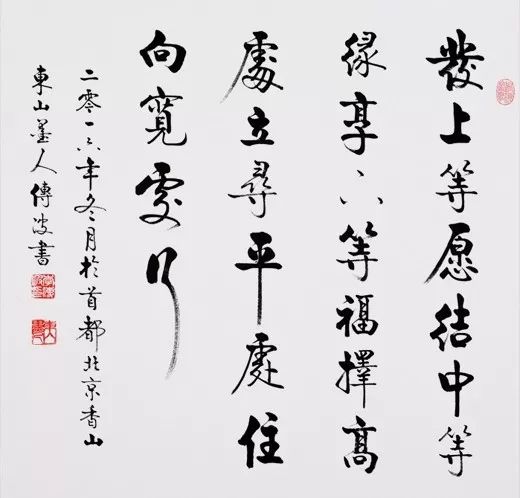 發上等愿结中等
緣享下等福擇高
處立尋平處住
向寬處行
二零一六年冬月於首都北京香山
東山墨人傳波書